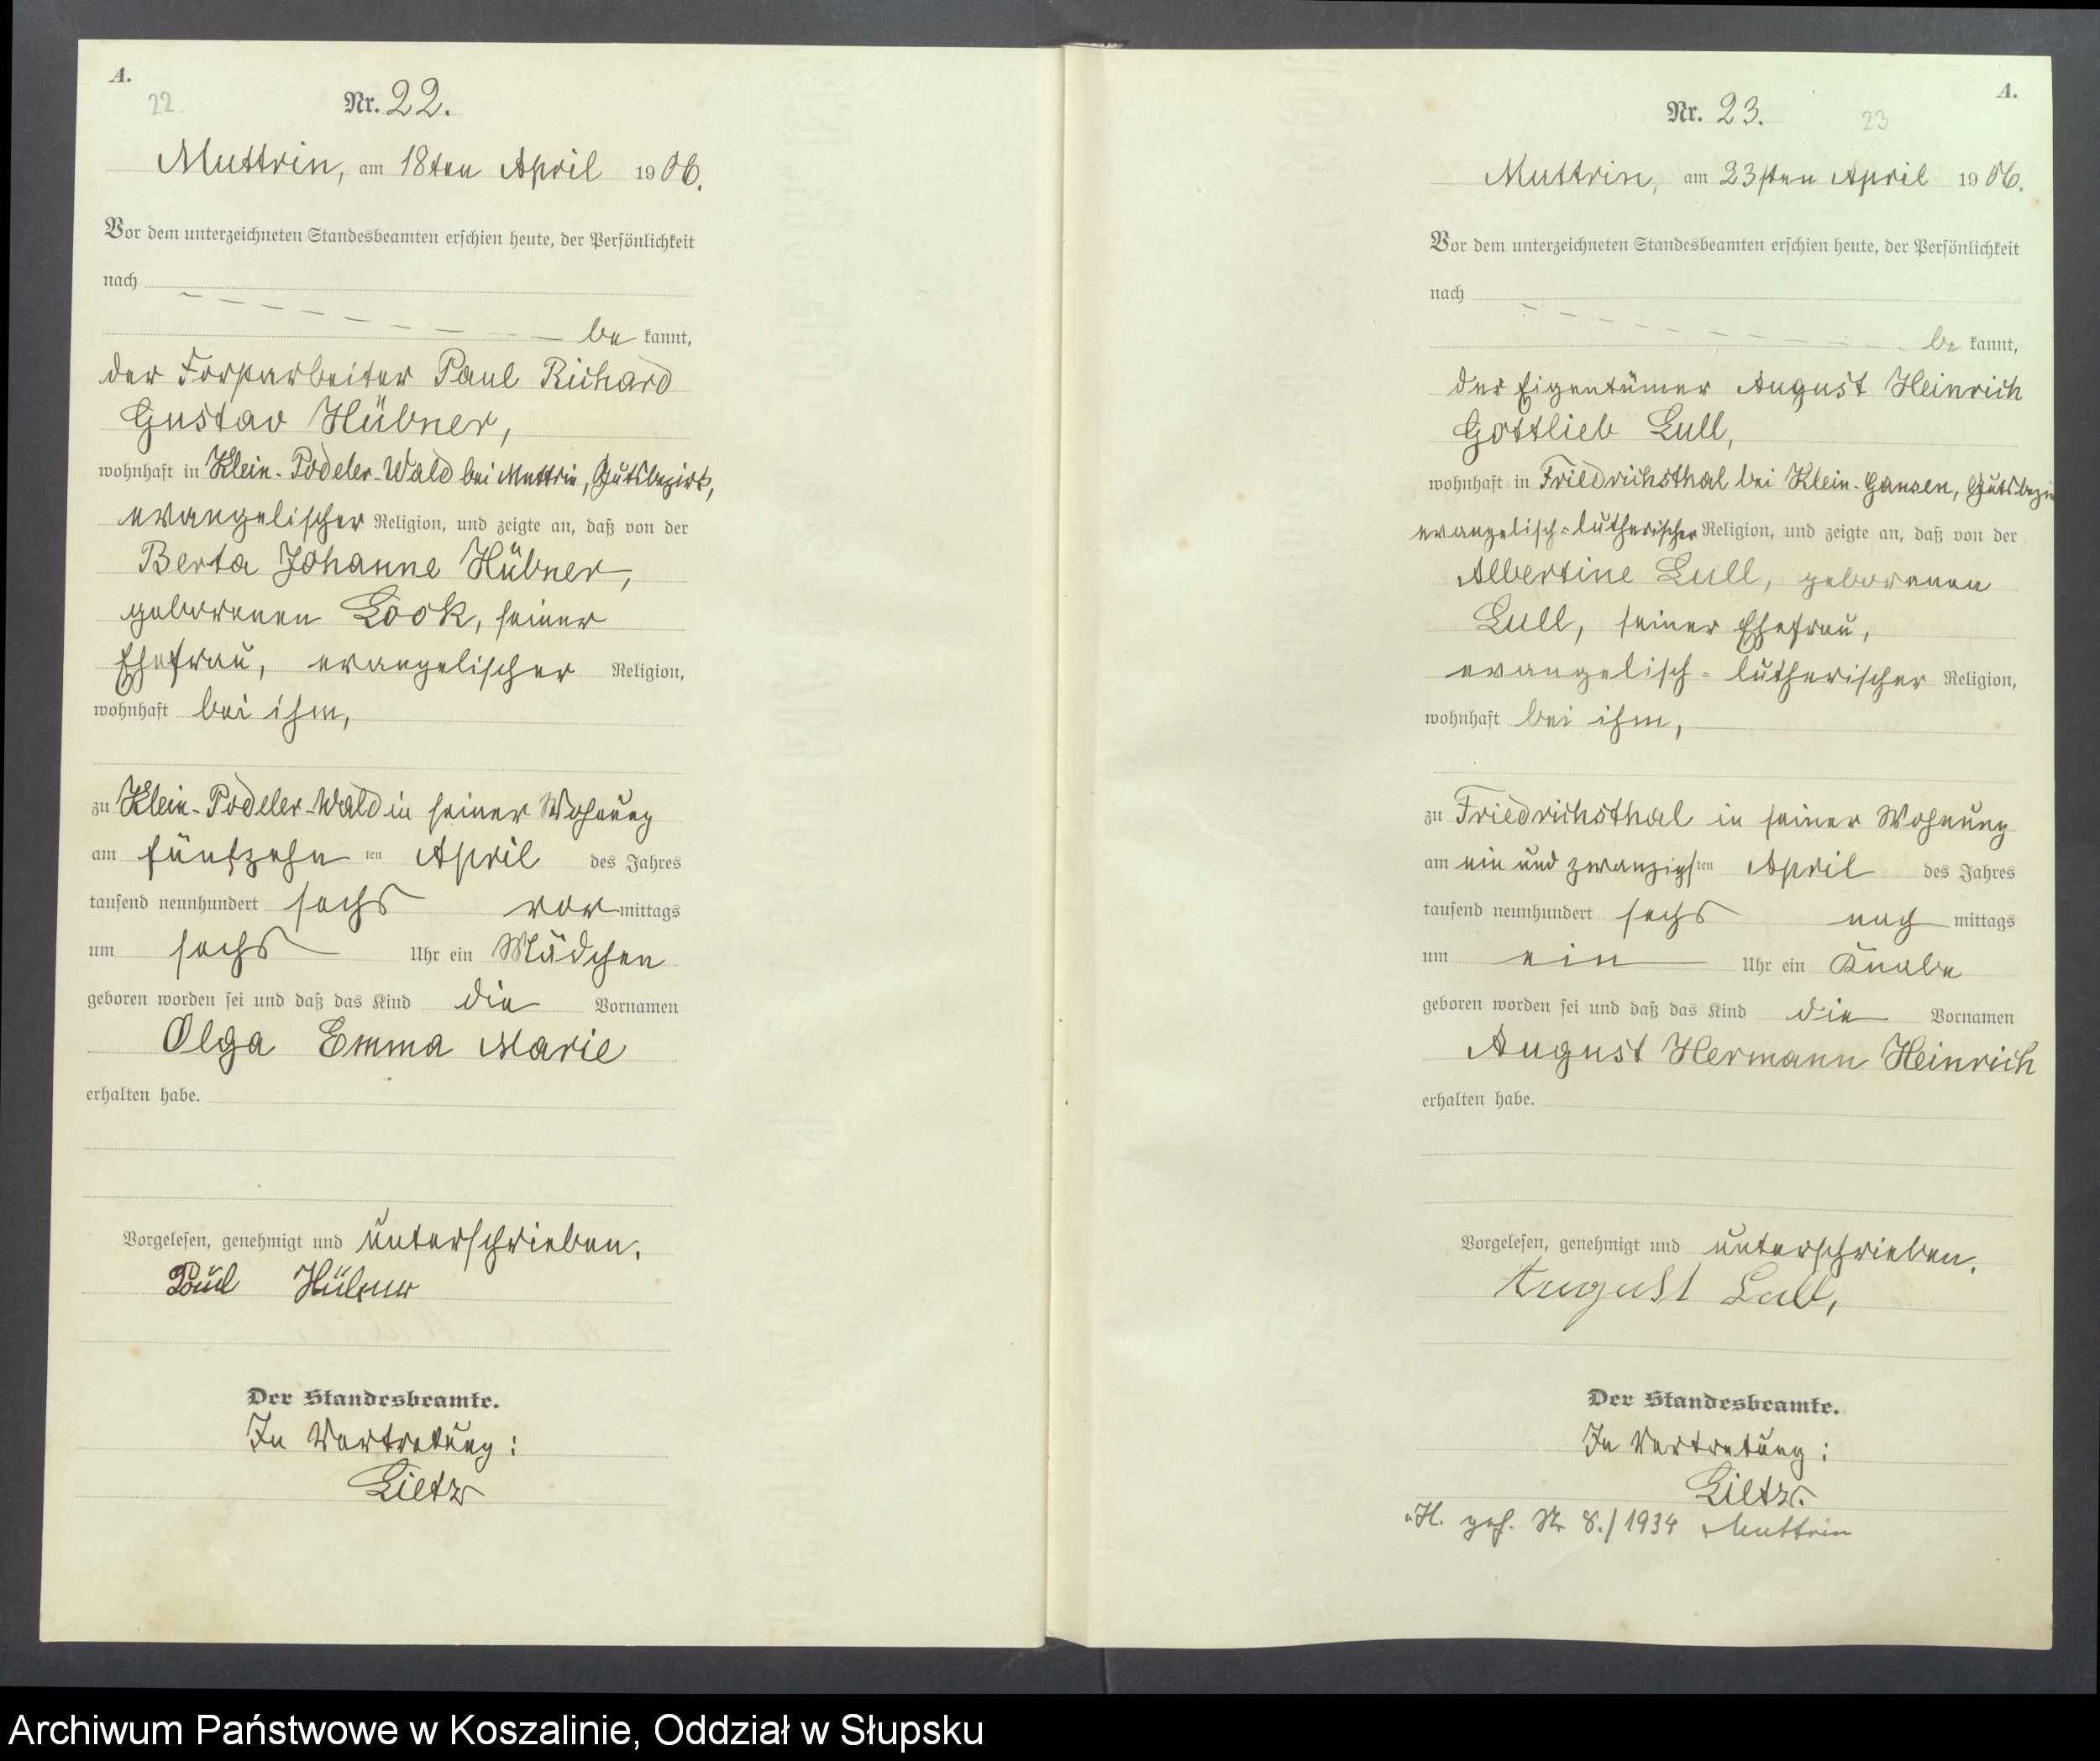 A.
22.
Nr. 22.
Muttrin, am 18ten April 1906.
Vor dem unterzeichneten Standesbeamten erschien heute, der Persönlichkeit
nach
be kannt,
der Forstarbeiter Paul Richard
Gustav Hübner,
wohnhaft in Klein-Podeler-Wald bei Muttrin, Gutsbezirk,
evangelischer Religion, und zeigte an, daß von der
Berta Johanne Hübner,
geborenen Look, seiner
Ehefrau, evangelischer Religion,
wohnhaft bei ihm,
zu Klein-Podeler-Wald in seiner Wohnung
am fünfzehn ten April des Jahres
tausend neunhundert sechs vor mittags
um sechs Uhr ein Mädchen
geboren worden sei und daß das Kind die Vornamen
Olga Emma Marie
erhalten habe.
Vorgelesen, genehmigt und unterschrieben.
Paul Hübner
Der Standesbeamte.
In Vertretung:
Lietz
A.
23
Nr. 23.
Muttrin, am 23sten April 1906.
Vor dem unterzeichneten Standesbeamten erschien heute, der Persönlichkeit
nach
be kannt,
der Eigentümer August Heinrich
Gottlieb Lull,
wohnhaft in Friedrichsthal bei Klein-Gansen, Gutsbezir
evangelisch-lutherischer Religion, und zeigte an, daß von der
Albertine Lull, geborenen
Lull, seiner Ehefrau,
evangelisch-lutherischer Religion,
wohnhaft bei ihm,
zu Friedrichsthal in seiner Wohnung
am ein und zwanzigsten April des Jahres
tausend neunhundert sechs nach mittags
um ein Uhr ein Knabe
geboren worden sei und daß das Kind die Vornamen
August Hermann Heinrich
erhalten habe.
Vorgelesen, genehmigt und unterschrieben.
August Lull,
Der Standesbeamte.
In Vertretung:
Lietz.
H. geh. Nr 8./1934 Muttrin
Archiwum Państwowe w Koszalinie, Oddział w Słupsku